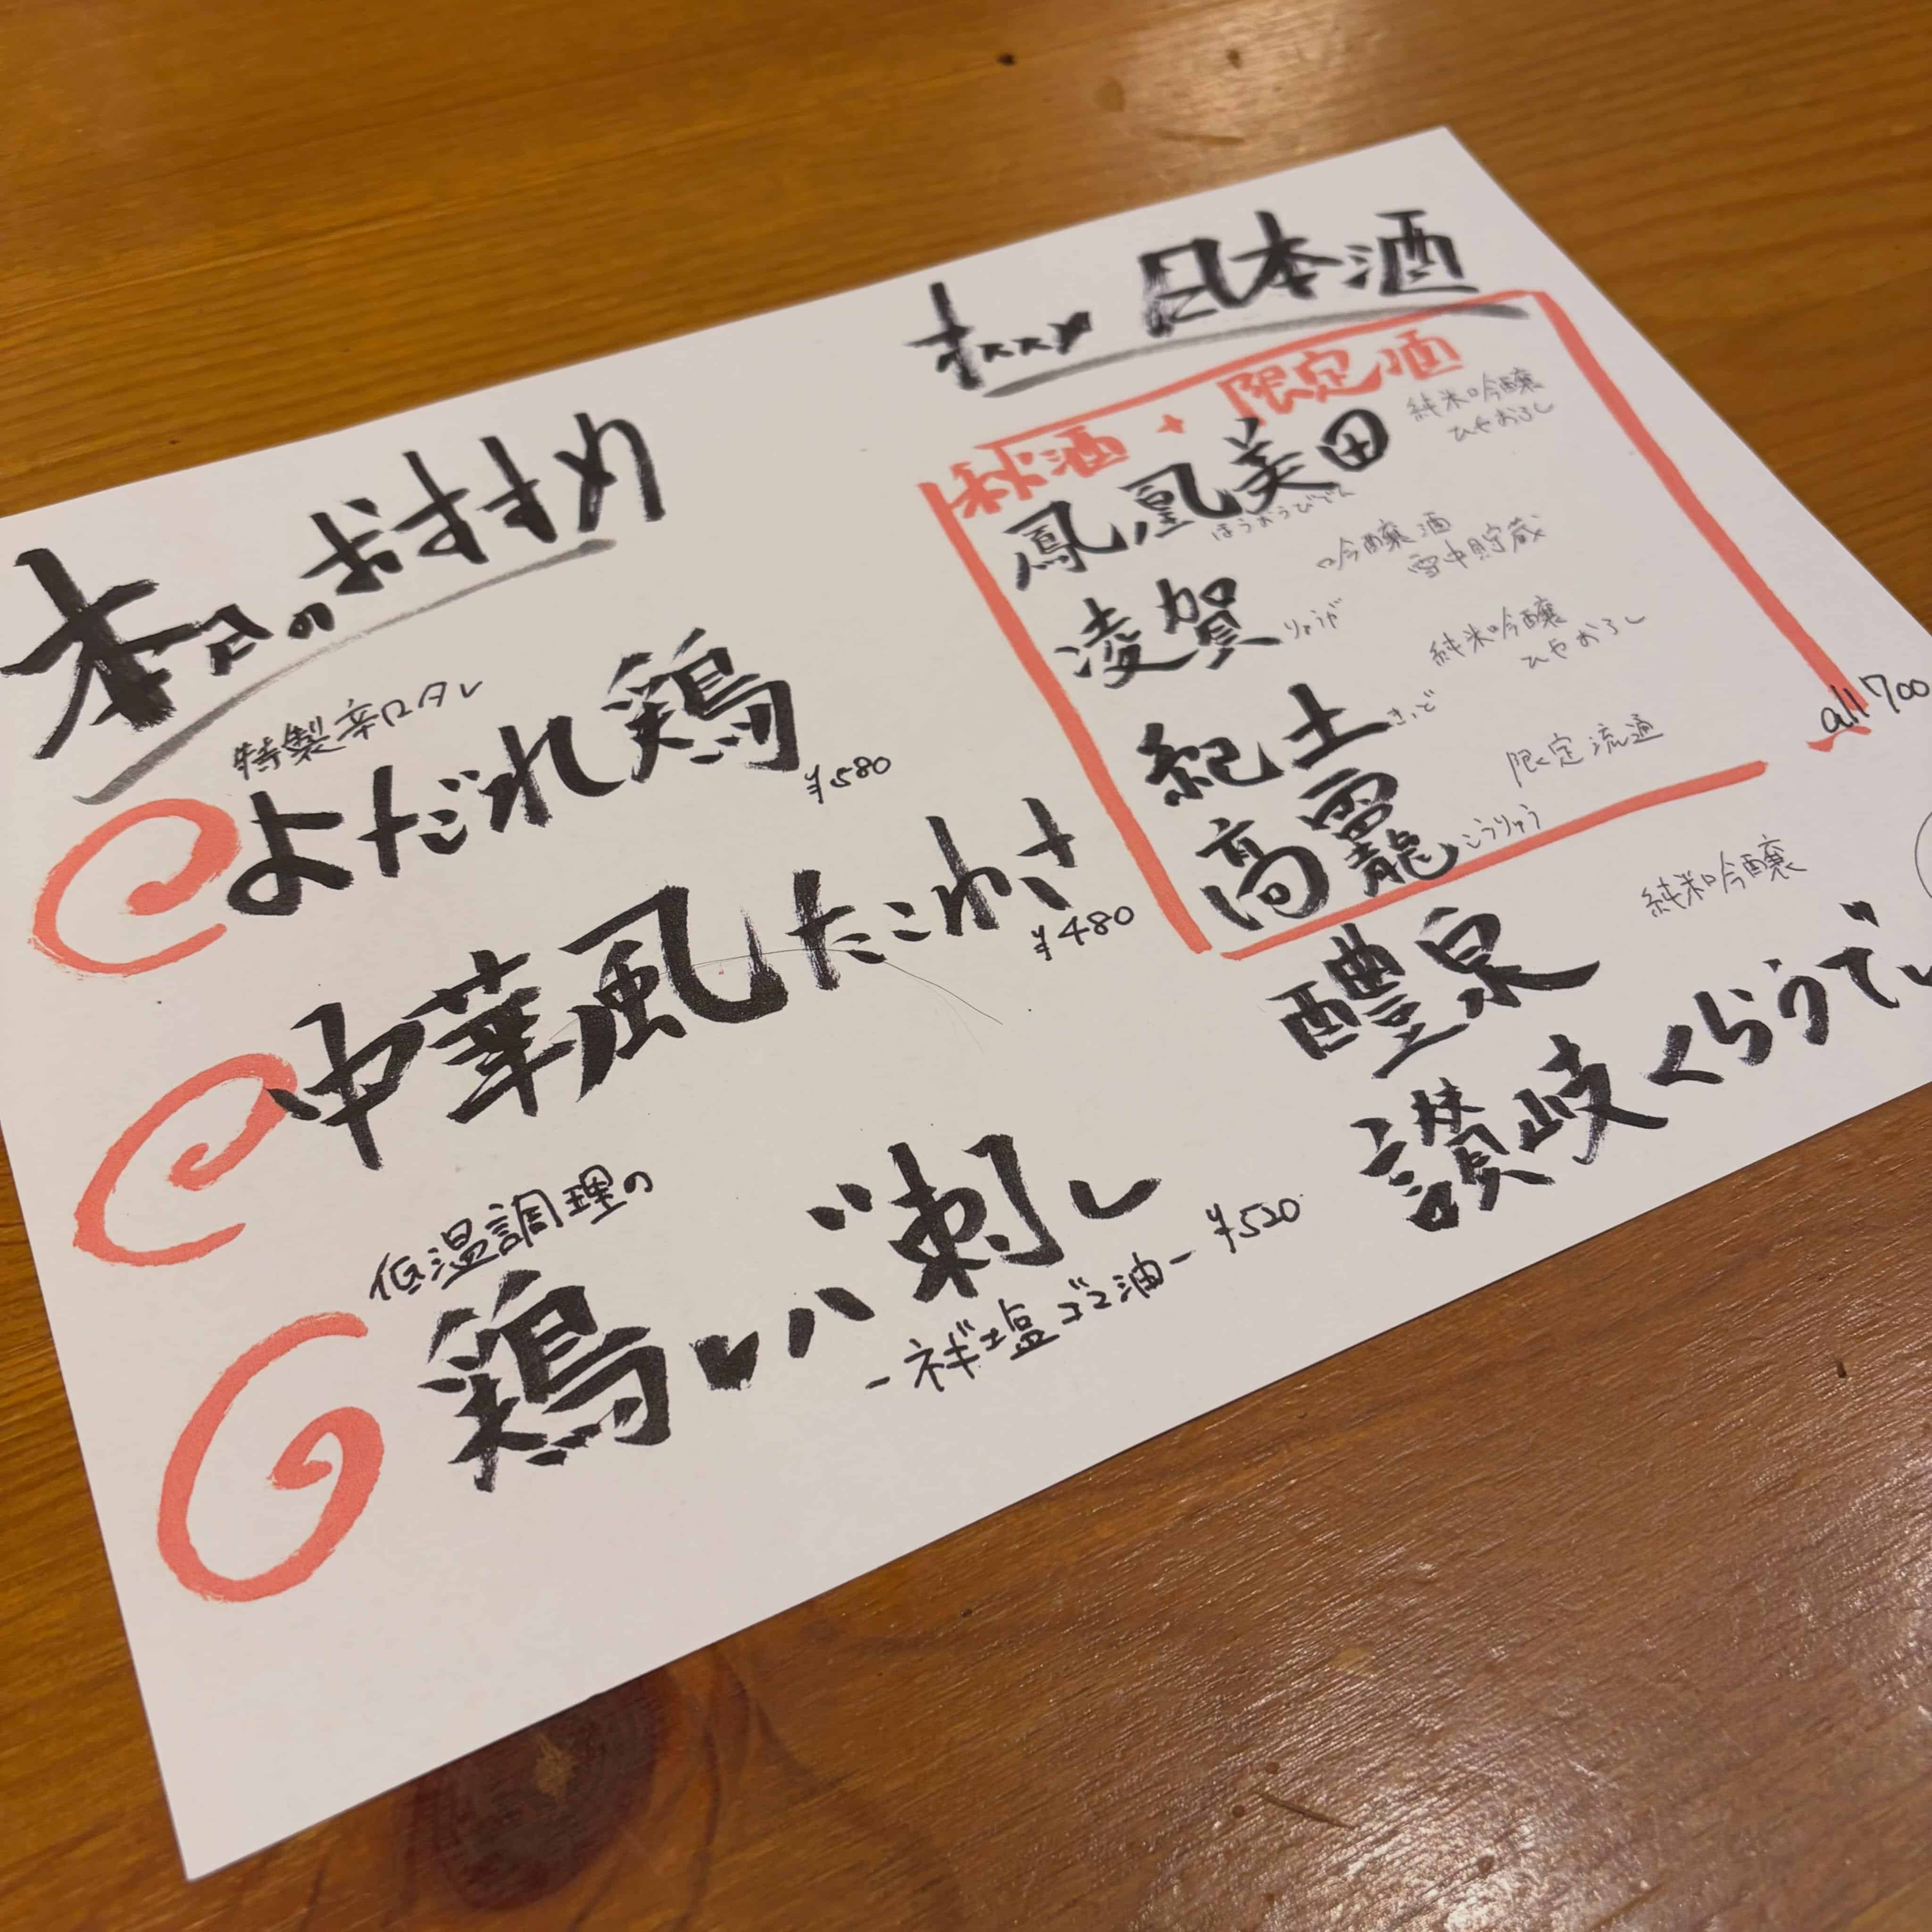 本日のおすすめ
特製辛口タレ
よだれ鶏
¥580
中華風たこわさ
¥480
低温調理の
鶏レバ刺し
-ネギ塩ゴマ油- ¥520
日本酒
秋酒 + 限定酒
鳳凰美田
ほうおうびでん
純米吟醸
ひやおろし
凌賀
りょうが
吟醸酒
雪中貯蔵
紀土
きっど
純米吟醸
ひやおろし
高龗
こうりゅう
限定流通
all 700
醴泉
純米吟醸
讃岐くらうでぃ